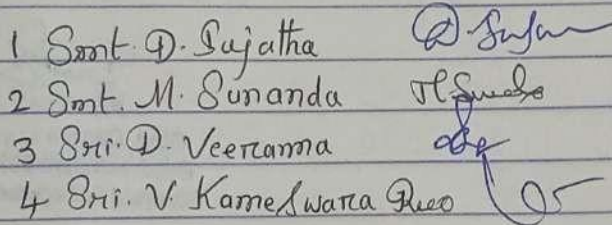 1 Smt. D. Sujatha
2 Smt. M. Sunanda
3 Sri. D. Veeranna
4 Sri. V. Kameswara Rao